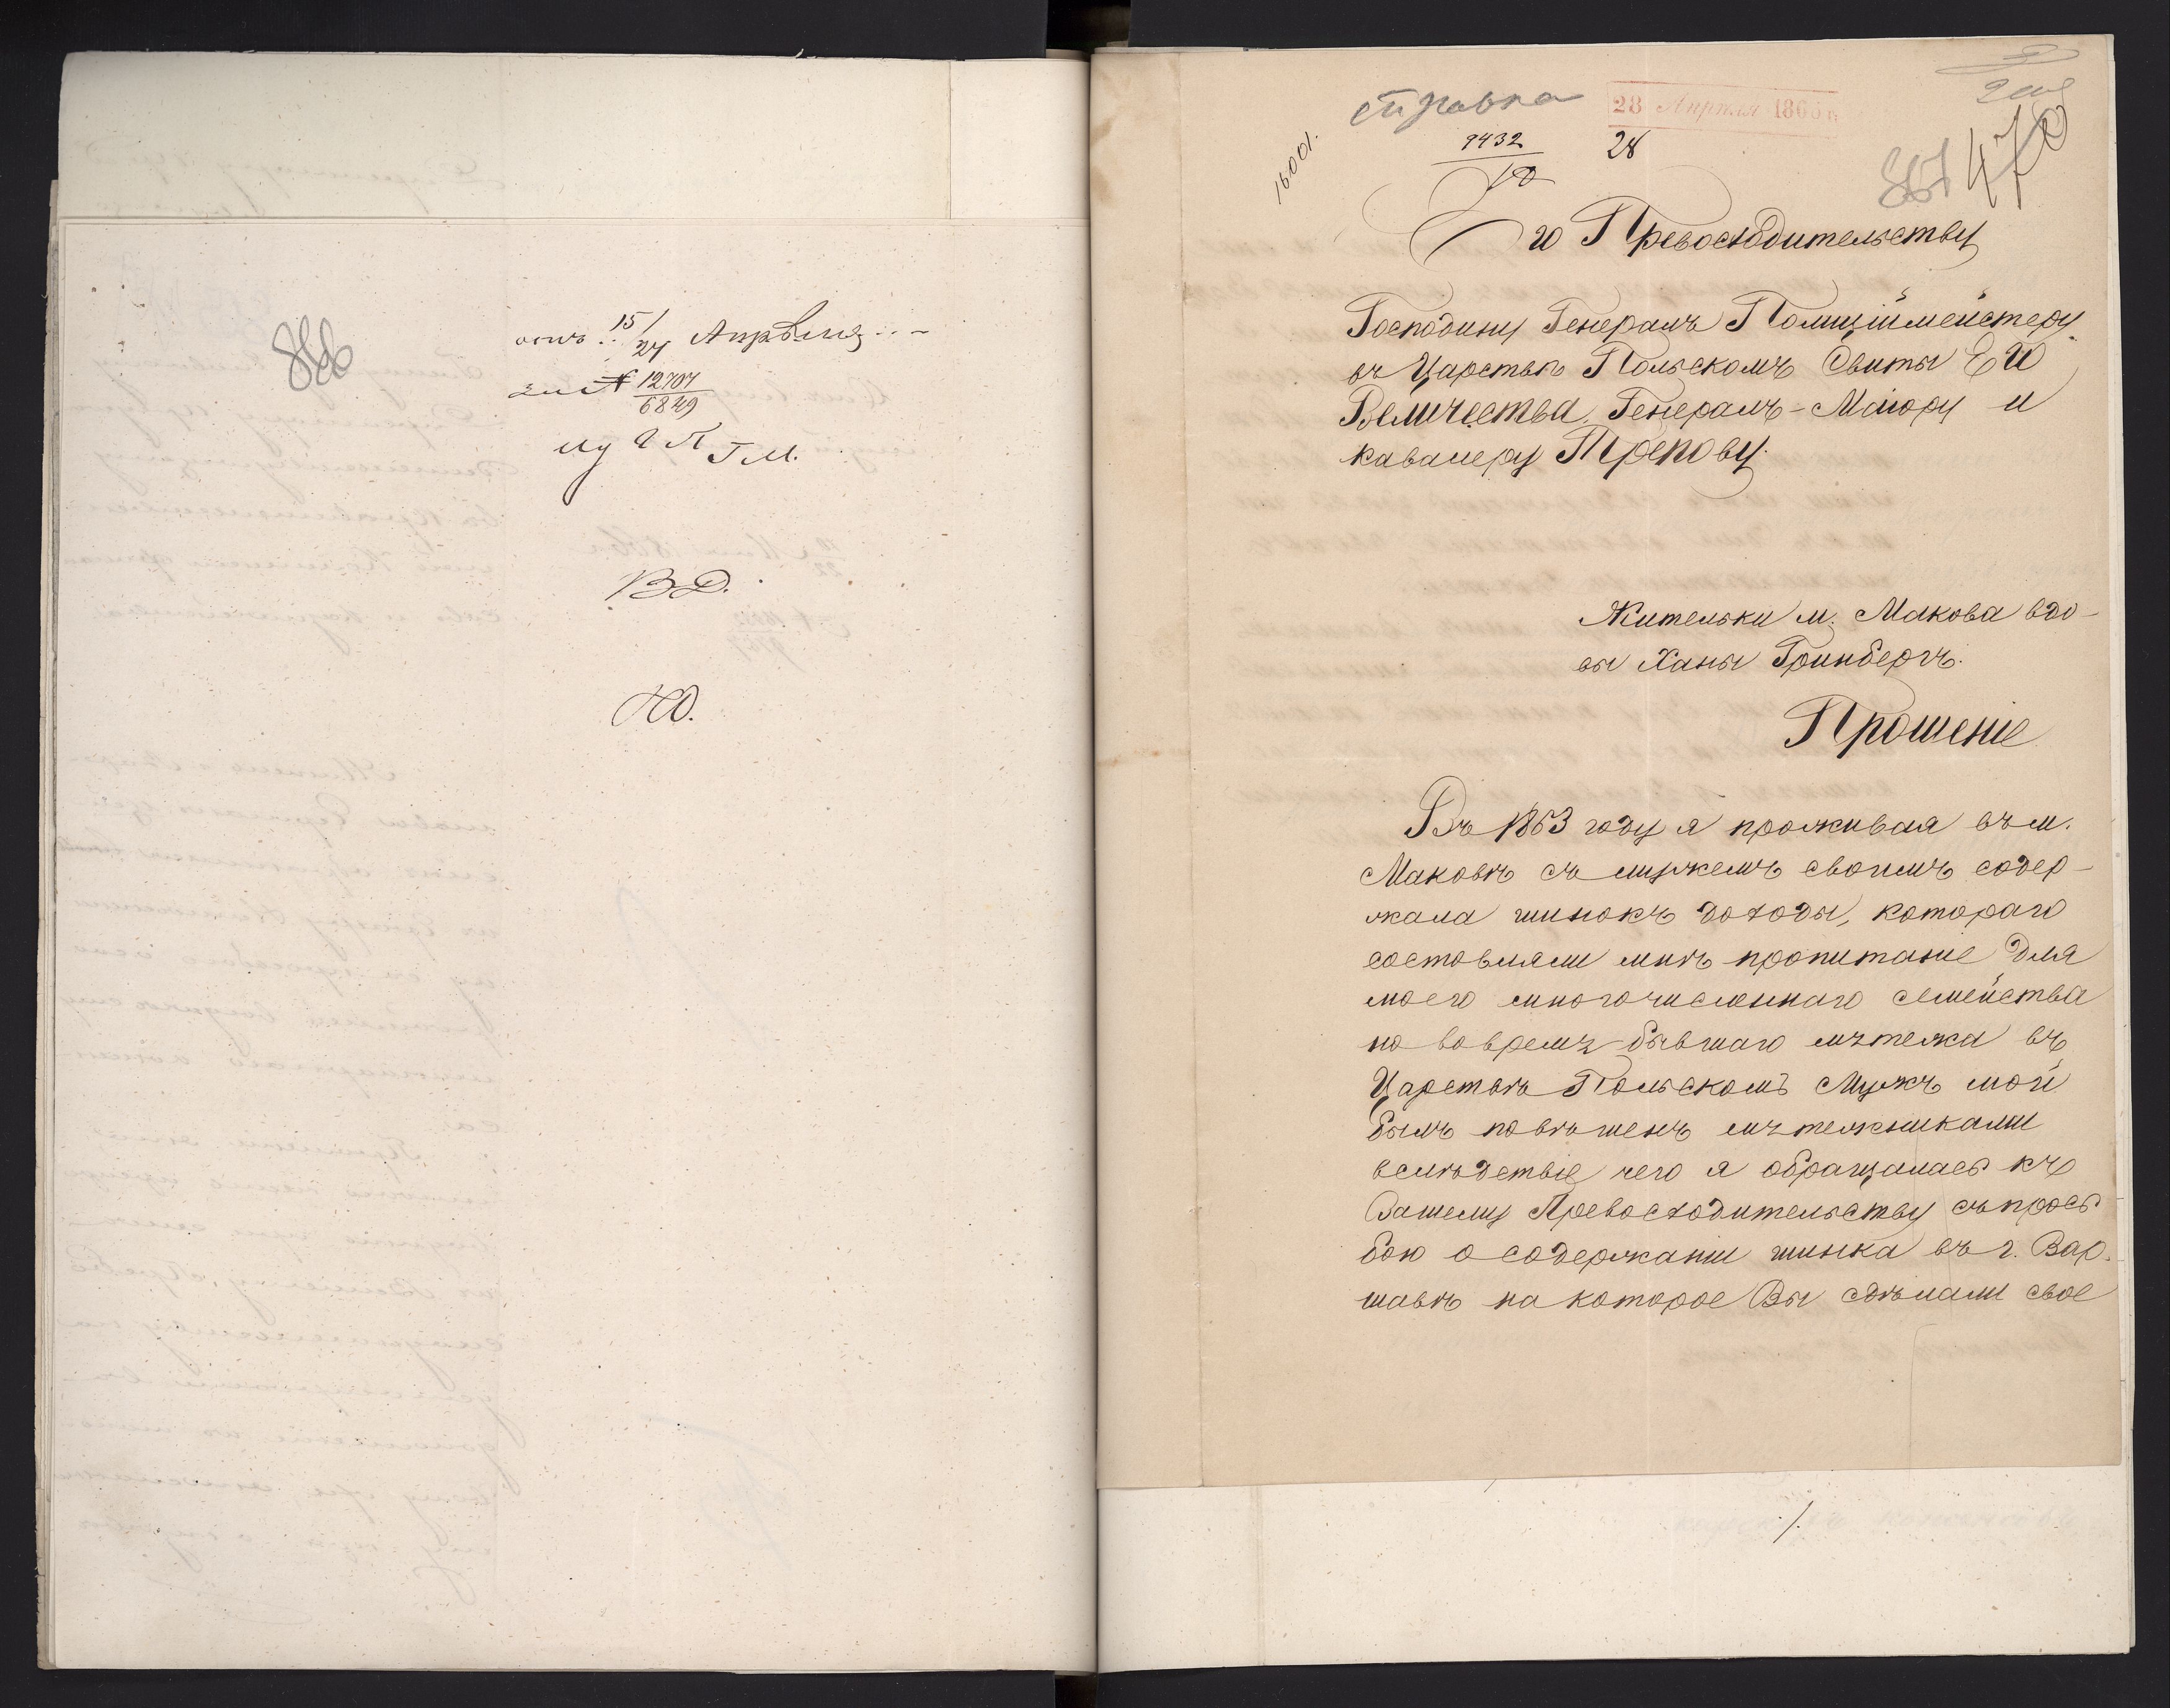 866
отъ 15/27 Апрѣля
за № 12707/6829
ВД.
справка
28 Апрѣля 186
9432
10
28
16001.
867
470
Его Превосходительству
Господину Генералъ Полицiймейстеру
въ Царствѣ Польскомъ Свиты ЕИ
Величества, Генералъ-Маiору и
кавалеру Трепову.
Жительки м. Макова вдо-
вы Ханы Гринбергъ.
Прошенiе
Въ 1863 году я проживая въ м.
Маковѣ съ мужемъ своимъ содер-
жала шинокъ доходы, котораго
составляли мнѣ пропитанiе для
моего многочисленнаго семейства
но вовремъ бывшаго мѣтежа въ
Царствѣ Польскомъ Мужъ мой
былъ повѣшенъ мѣтежниками
вслѣдствiе чего я обращалась къ
Вашему Превосходительству съ прось
бою о содержанiи шинка въ г. Вар-
шавѣ на которое Вы сдѣлали свое
./.